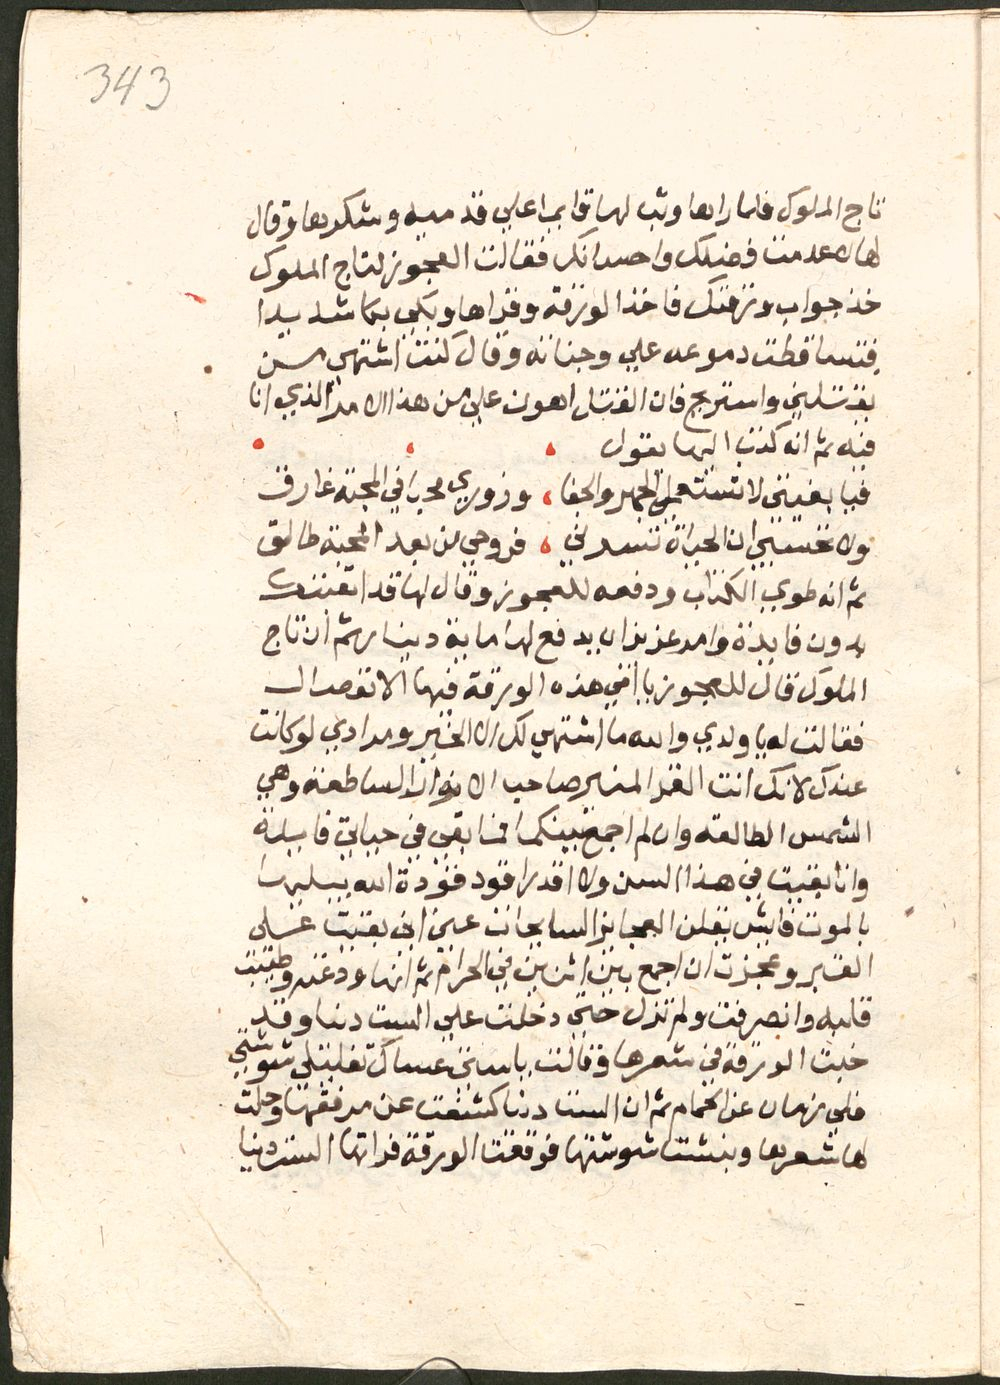 343
تاج الملوك فلما راها وثب لها قايما علي قدميه وشكرها وقال
لها لا عدمت فضلك واحسانك فقالت العجوز لتاج الملوك
خذ جواب ورقتك فاخذ الورقة وقراها وبكي بكا شديدا
فتساقطت دموعه علي وجناته وقال كنت اشتهي من
يقتلني واستريح فان القتل اهون علي من هذا الامر الذي انا
فيه ثم انه كتب اليها يقول
فيا بغيتي لا تستعملي الهجر والجفا وزوري محبا في المحبة غارق
ولا تحسبيني ان الحياة تسدني فروحي من بعد المحبة طالق
ثم انه طوي الكتاب ودفعه للعجوز وقال لها قد اتعبتك
بدون فايدة وامر عزيز ان يدفع لها ماية دينار ثم ان تاج
الملوك قال للعجوز يا امي هذه الورقة فيها الاتفصال
فقالت له يا ولدي والله ما اشتهي لك الا الخير ومرادي لو كانت
عندك لانك انت القمر المنير صاحب الانوار الساطعة وهي
الشمس الطالعه وان لم اجمع بينكما فما بقي في حياتي فايدة
وانا بقيت في هذا السن ولا اقدر اقود فقودة الله يبليها
بالموت فايش يقلن العجايز السايحات عني اني بقيت علي
القبر وعجزت ان اجمع بين اثنين في الحرام ثم انها ودعته وطيبت
قلبه وانصرفت ولم تزل حتي دخلت علي الست دنيا وقد
خبت الورقة في شعرها وقالت يا ستي عساك تفليلي شوشتي
فلي زمان عن الحمام ثم ان الست دنيا كشفت عن مرفقيها وحلت
لها شعرها وبنشت شوشتها فوقعت الورقة فراتها الست دنيا